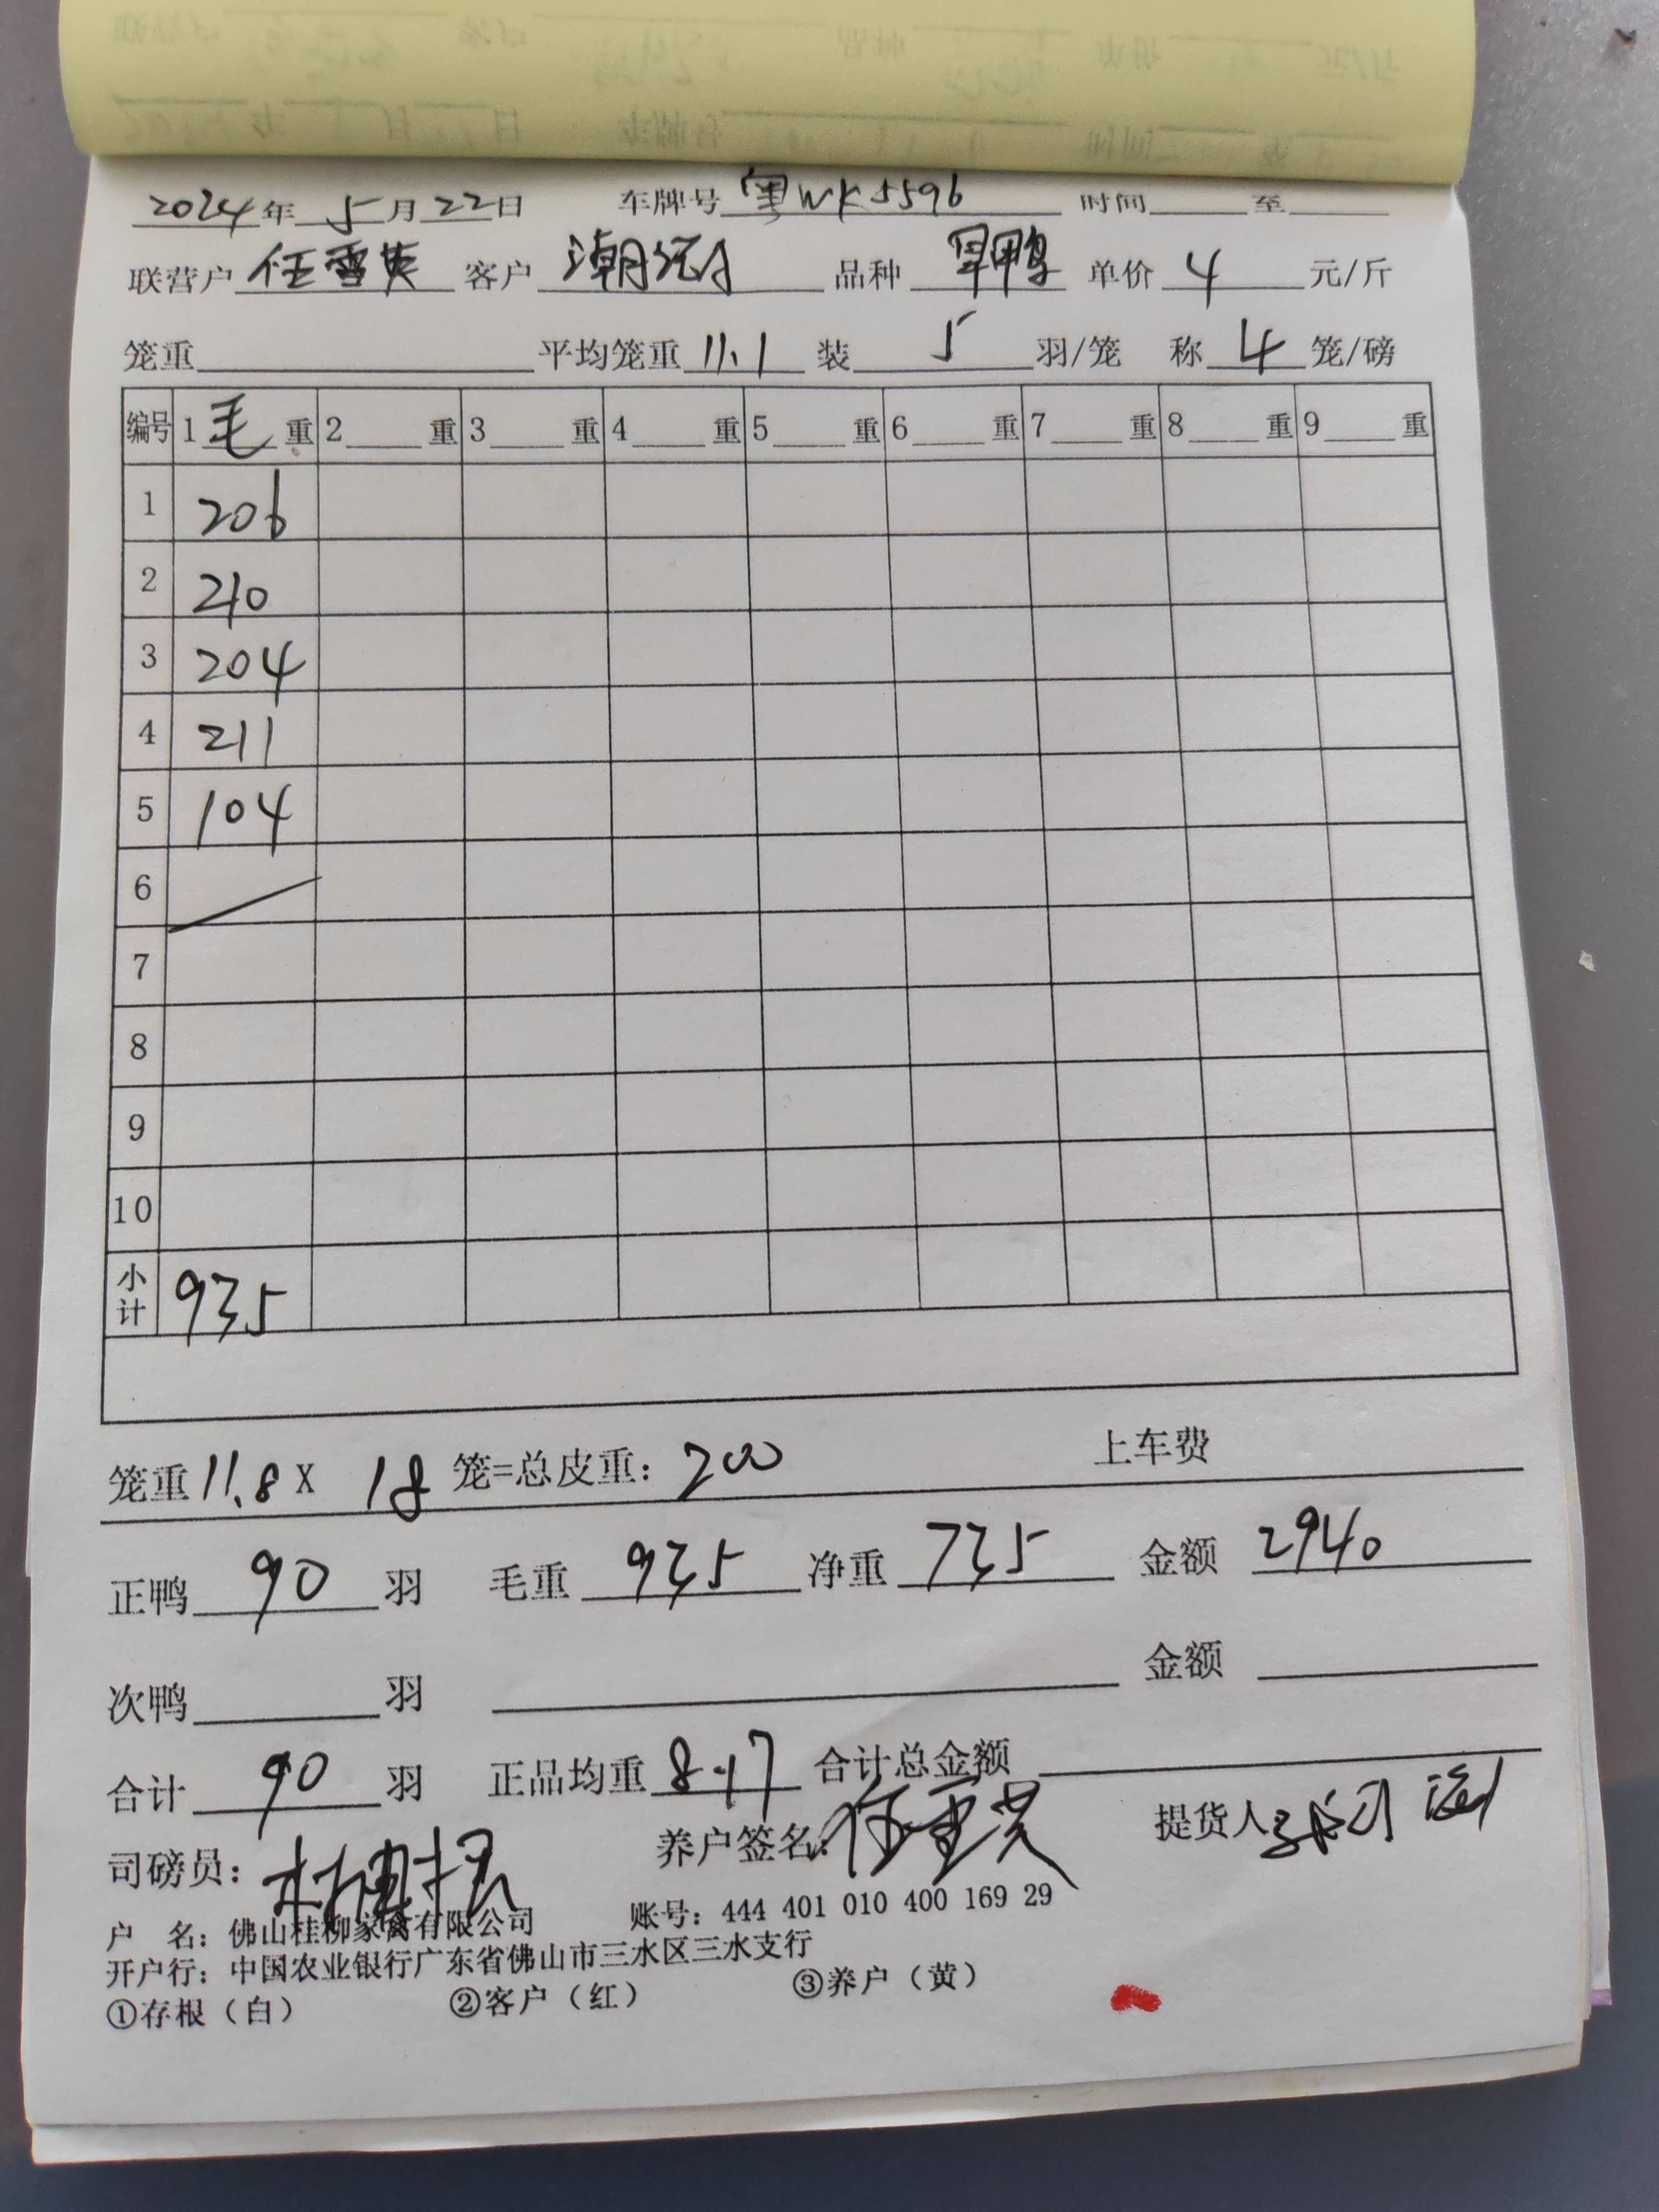 2024年 5月22日 车牌号 粤WK5596 时间 至
联营户 任雪英 客户 潮 品种 旱鸭 单价 4 元/斤
笼重 平均笼重 11.1 装 5 羽/笼 称 4 笼/磅
编号 1 毛 重 2 重 3 重 4 重 5 重 6 重 7 重 8 重 9 重
1 206
2 210
3 204
4 211
5 104
6
7
8
9
10
小计 935
笼重 11.8 X 18 笼=总皮重: 200 上车费
正鸭 90 羽 毛重 935 净重 735 金额 2940
次鸭 羽 金额
合计 90 羽 正品均重 8.17 合计总金额
司磅员: 养户签名: 任雪英 提货人
户 名: 佛山桂柳家禽有限公司 账号: 444 401 010 400 169 29
开户行: 中国农业银行广东省佛山市三水区三水支行
①存根（白） ②客户（红） ③养户（黄）